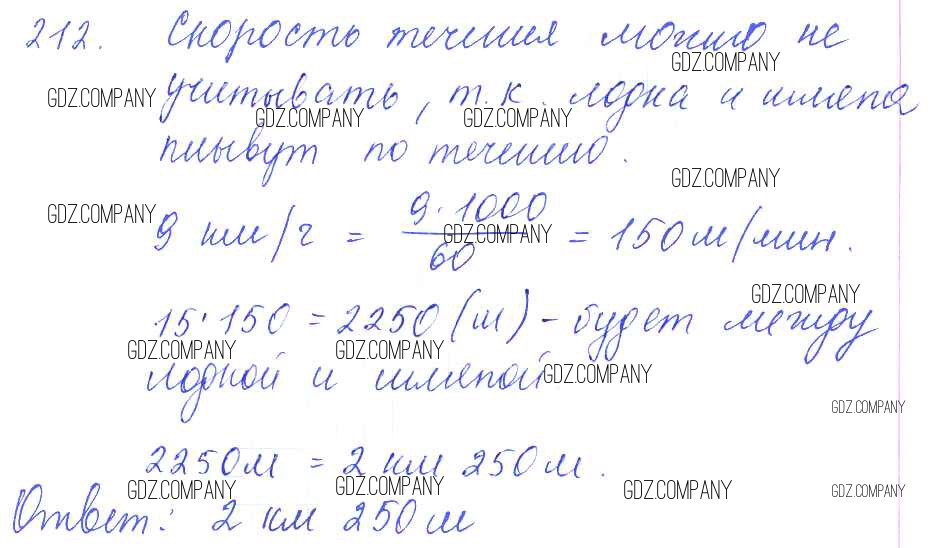 212. Скорость течения можно не
GDZ.COMPANY
GDZ.COMPANY учитывать, т.к. лодка и шляпа
GDZ.COMPANY GDZ.COMPANY
плывут по течению.
GDZ.COMPANY
GDZ.COMPANY 9 км/ч = 9·1000/60 = 150 м/мин.
GDZ.COMPANY
GDZ.COMPANY
15·150 = 2250 (м) - будет между
GDZ.COMPANY GDZ.COMPANY
лодкой и шляпой GDZ.COMPANY
GDZ.COMPANY
2250 м = 2 км 250 м.
GDZ.COMPANY GDZ.COMPANY GDZ.COMPANY GDZ.COMPANY
Ответ: 2 км 250 м